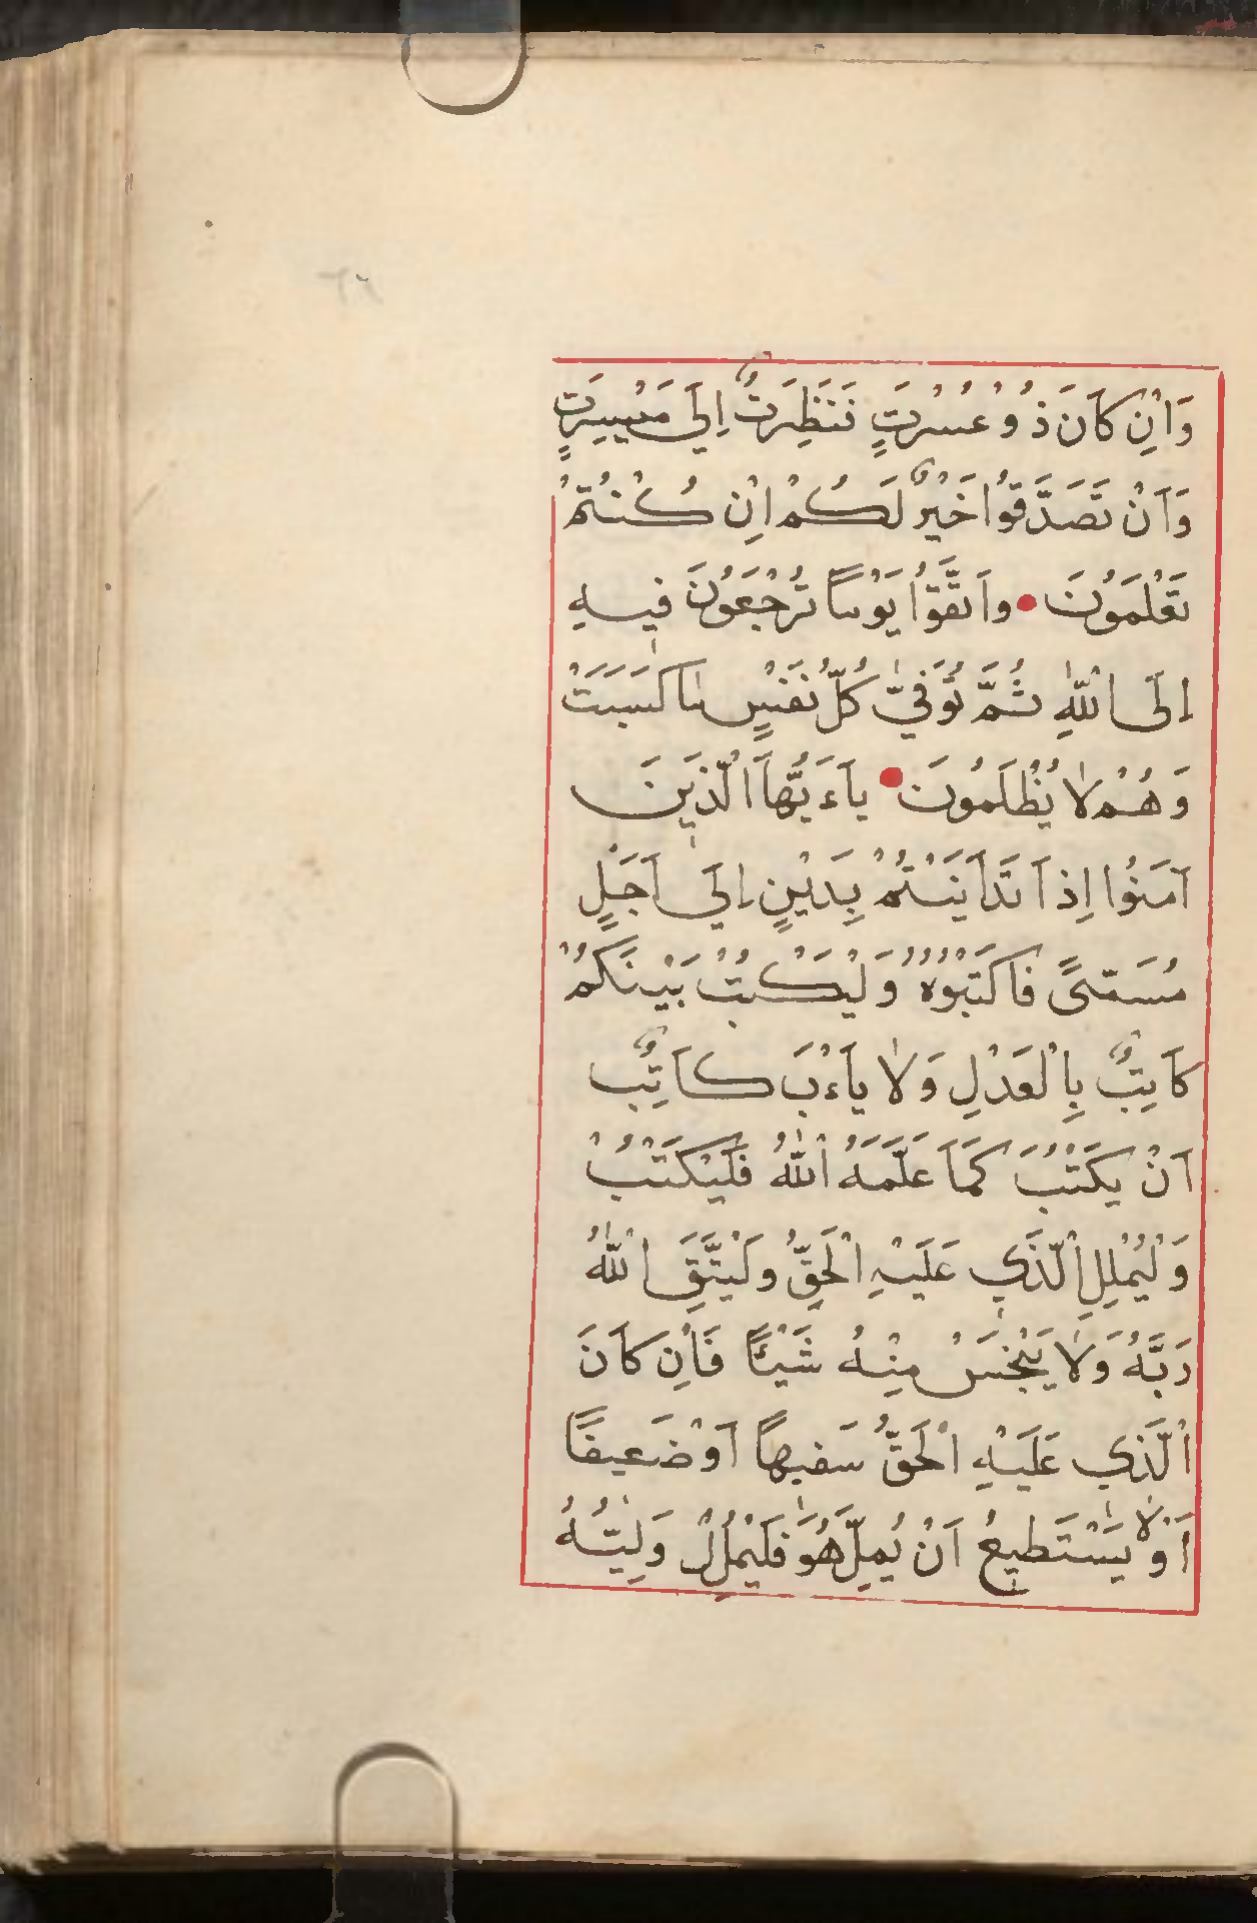 وَاِنْ كَانَ ذُوْ عُسْرَتٍ فَنَظِرَتٌ اِلَي مَيْسِرَتٍ
وَاَنْ تَصَدَّقُوا خَيْرٌ لَكُمْ اِنْ كُنْتُمْ
تَعْلَمَوُنَ • واَتَّقَوْاُ يَوْمًا تُرْجَعَوُنَ فيهِ
اِلَى اْللّٰهِ ثُمَّ تُوَفيّٰ كُلّ نَفْسٍ مٰا كَسَبَتْ
وَهُمْ لاٰ يُظْلَمُونَ • ياَءَيُّهاَ الّذَينَ
آمَنُوا اِذاَ تَدَاَيَنْتُمْ بِدَيْنٍ اِلَي اَجَلٍ
مُسَمّىً فاَكْتُبْوُهُ وَلْيَكْتُبْ بَيْنَكُمْ
كاَتِبٌ بِالْعَدْلِ وَلاٰ ياَءْبَ كاَتِبٌ
اَنْ يَكْتُبَ كَمَاَ عَلَّمَهُ اْللّٰهُ فَلْيَكْتُبْ
وَلْيُمْلِلِ اْلّذَي عَلَيْهِ اْلحَقُّ وَلْيَتَّقِ اْللّٰهُ
رَبَّهُ وَلاٰ يَبْخَسْ مِنْهُ شَيْئًا فَاِنْ كاَنَ
اْلّذَي عَلَيْهِ اْلحَقُّ سَفيهاً اَوْ ضَعيفًا
اَوْ لاٰ يَسْتَطيعُ اَنْ يُمِلّ هُوَ فَلْيُمْلِلْ وَلِيّهُ